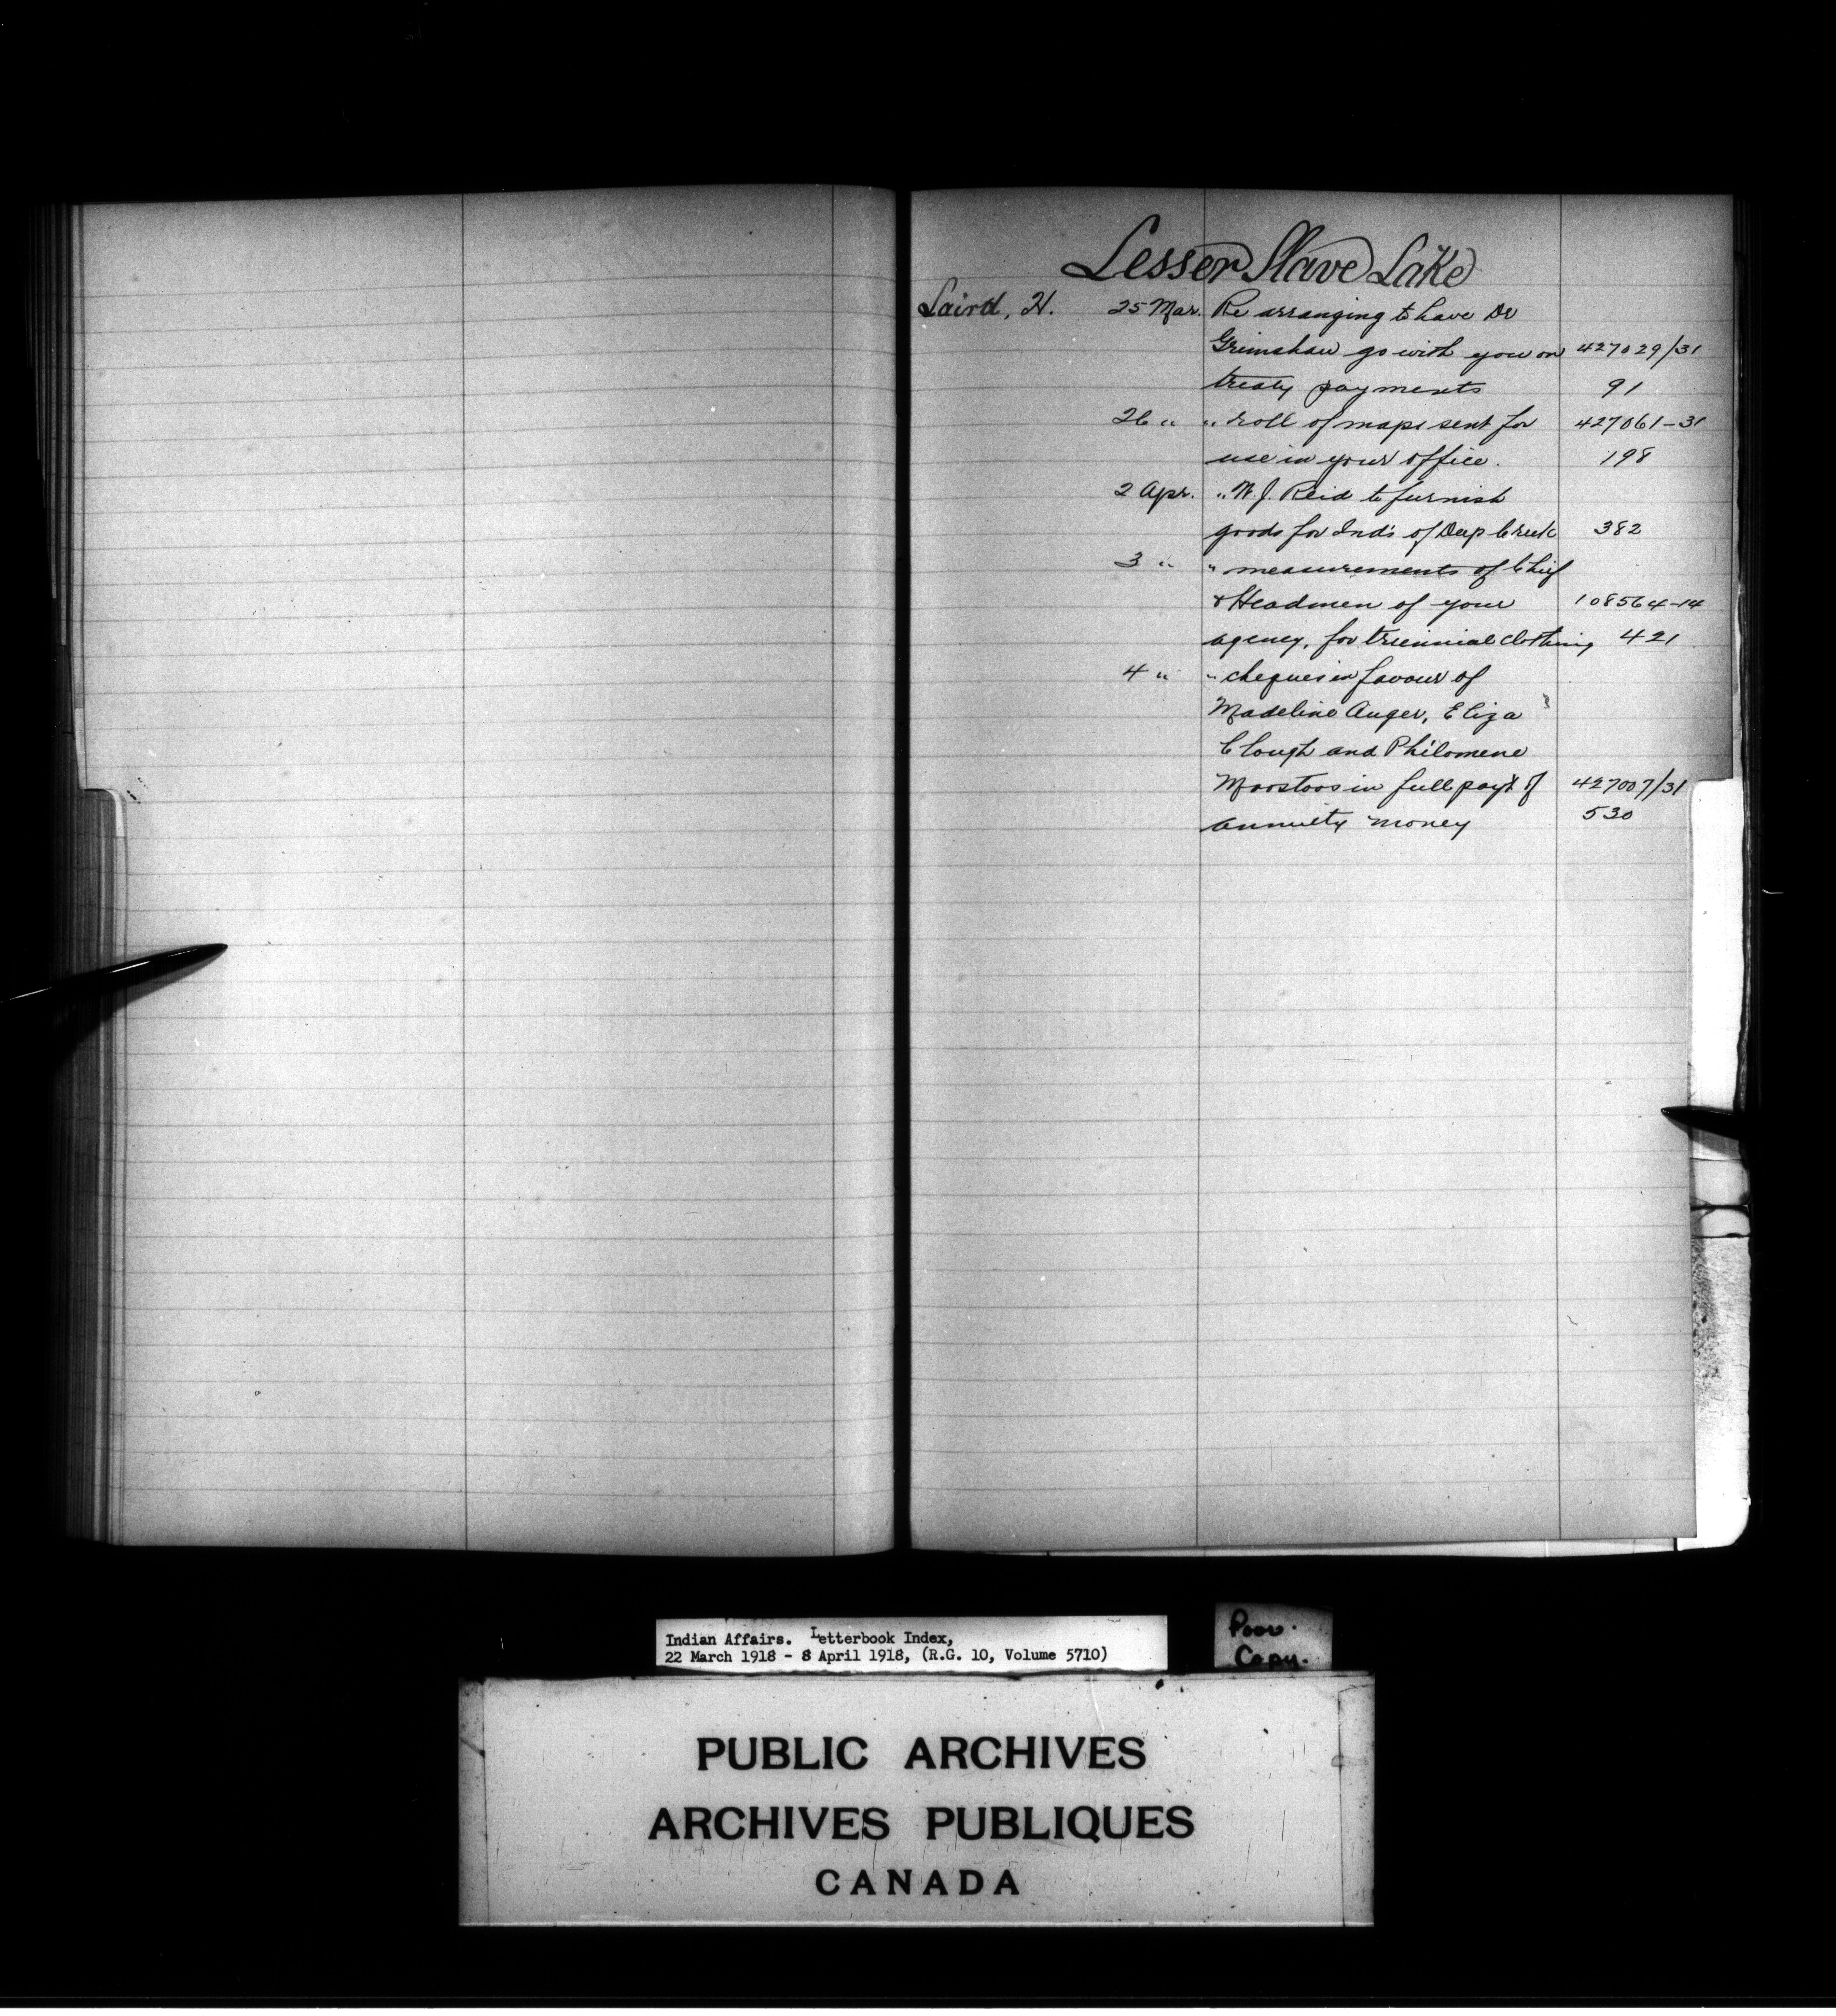 Lesser Slave Lake
Laird, H. 25 Mar. Re arranging to have Dr
Grimshaw go with you on 427029/31
treaty payments 91
26 " " roll of maps sent for 427061-31
use in your office. 198
2 Apr. " W. J. Reid to furnish
goods for Inds of Deep Creek 382
3 " " measurements of Chief
& Headmen of your 108564-14
agency, for triennial clothing 421
4 " " cheques in favour of
Madeline Auger, Eliza
Clough and Philomene
Moostoos in full payt of 427007/31
annuity money 530
Indian Affairs. Letterbook Index,
22 March 1918 - 8 April 1918, (R.G. 10, Volume 5710)
Poor.
Copy.
PUBLIC ARCHIVES
ARCHIVES PUBLIQUES
CANADA